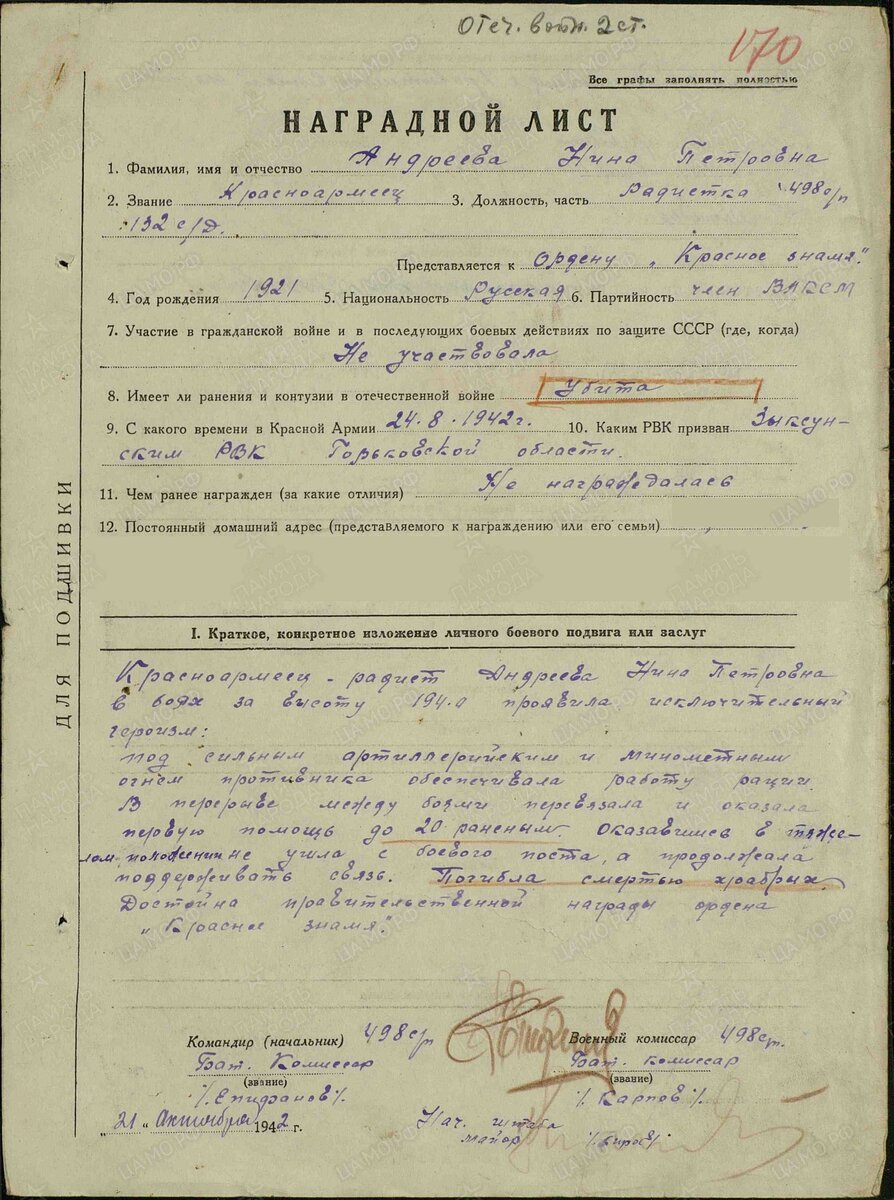 Отеч. войн. 2 ст.
170
Все графы заполнять полностью
НАГРАДНОЙ ЛИСТ
1. Фамилия, имя и отчество Андреева Нина Петровна
2. Звание Красноармеец 3. Должность, часть Радистка 498 с/п
132 с/д.
Представляется к Ордену „Красное знамя."
4. Год рождения 1921 5. Национальность Русская 6. Партийность член ВЛКСМ
7. Участие в гражданской войне и в последующих боевых действиях по защите СССР (где, когда)
Не участвовала
8. Имеет ли ранения и контузии в отечественной войне Убита
9. С какого времени в Красной Армии 24.8.1942 г. 10. Каким РВК призван Зыксун-
ским РВК Горьковской области.
11. Чем ранее награжден (за какие отличия) Не награждалась
12. Постоянный домашний адрес (представляемого к награждению или его семьи)
ДЛЯ ПОДШИВКИ
I. Краткое, конкретное изложение личного боевого подвига или заслуг
Красноармеец - радист Андреева Нина Петровна
в боях за высоту 194.0 проявила исключительный
героизм:
под сильным артиллерийским и минометным
огнем противника обеспечивала работу рации.
В перерыве между боями перевязала и оказала
первую помощь до 20 раненым. Оказавшись в тяже-
лом положении не ушла с боевого поста, а продолжала
поддерживать связь. Погибла смертью храбрых.
Достойна правительственной награды ордена
„Красное знамя".
Командир (начальник) 498 с/п Военный комиссар 498 с/п.
Бат. Комиссар Бат. комиссар
(звание) (звание)
/Епифанов/. /Карпов/.
„21" октября 1942 г. Нач. штаба
майор